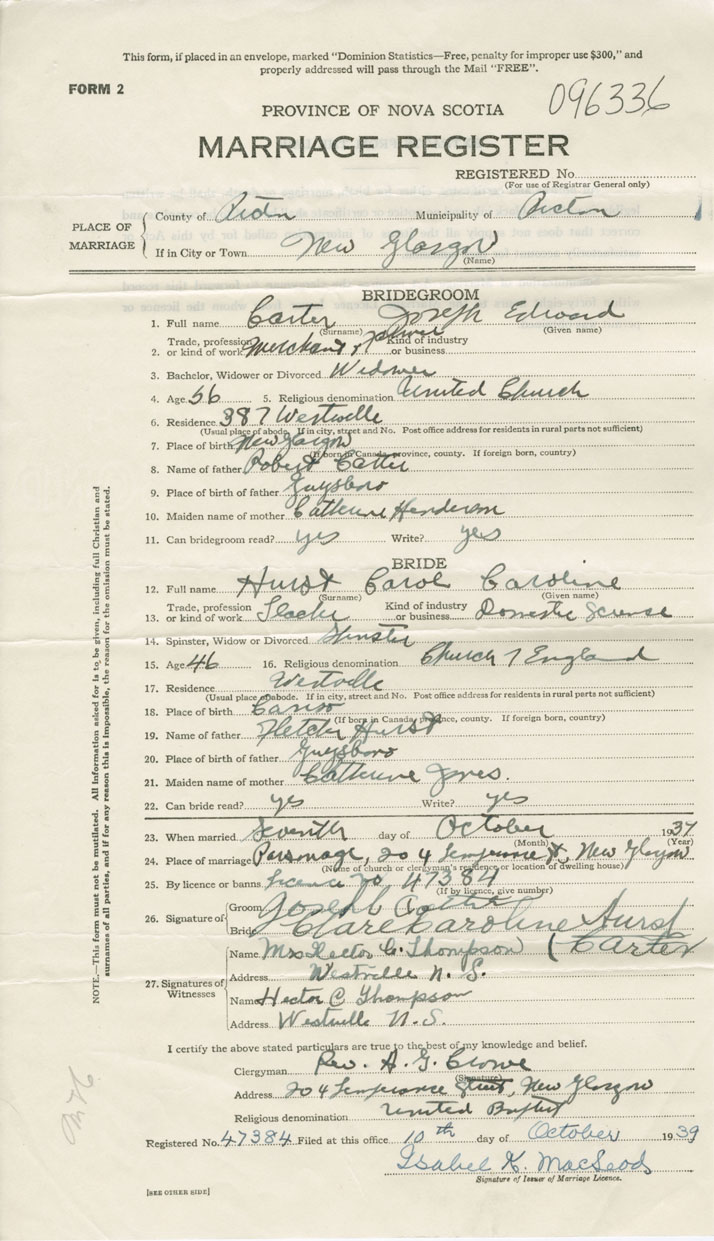 This form, if placed in an envelope, marked "Dominion Statistics—Free, penalty for improper use $300," and
properly addressed will pass through the Mail "FREE".
FORM 2
096336
PROVINCE OF NOVA SCOTIA
MARRIAGE REGISTER
REGISTERED No.
(For use of Registrar General only)
PLACE OF MARRIAGE
County of Pictou Municipality of Pictou
If in City or Town New Glasgow
(Name)
BRIDEGROOM
1. Full name Carter Joseph Edward
(Surname) (Given name)
2. Trade, profession or kind of work Merchant Kind of industry or business
3. Bachelor, Widower or Divorced Widower
4. Age 56 5. Religious denomination United Church
6. Residence 387 Westville
(Usual place of abode. If in city, street and No. Post office address for residents in rural parts not sufficient)
7. Place of birth New Glasgow
(If born in Canada, province, county. If foreign born, country)
8. Name of father Robert Carter
9. Place of birth of father Guysboro
10. Maiden name of mother Catherine Henderson
11. Can bridegroom read? yes Write? yes
BRIDE
12. Full name Hurst Carol Caroline
(Surname) (Given name)
13. Trade, profession or kind of work Kind of industry or business Domestic Science
14. Spinster, Widow or Divorced Spinster
15. Age 46 16. Religious denomination Church of England
17. Residence Westville
(Usual place of abode. If in city, street and No. Post office address for residents in rural parts not sufficient)
18. Place of birth Canso
(If born in Canada, province, county. If foreign born, country)
19. Name of father Fletcher Hurst
20. Place of birth of father Guysboro
21. Maiden name of mother Catherine Jones.
22. Can bride read? yes Write? yes
23. When married Seventh day of October 1937
(Month) (Year)
24. Place of marriage Parsonage, 204 Temperance St, New Glasgow
(Name of church or clergyman's residence or location of dwelling house)
25. By licence or banns Licence no 47384
(If by licence, give number)
26. Signature of
Groom Joseph Carter
Bride Clare Caroline Hurst
(Carter
27. Signatures of Witnesses
Name Mrs Hector C. Thompson
Address Westville N. S.
Name Hector C Thompson
Address Westville N.S.
I certify the above stated particulars are true to the best of my knowledge and belief.
Clergyman Rev. A. G. Crowe
(Signature)
Address 204 Temperance Street, New Glasgow
Religious denomination United Baptist
Registered No. 47384 Filed at this office 10th day of October 1939
Isabel K. MacLeod
Signature of Issuer of Marriage Licence.
[SEE OTHER SIDE]
NOTE.—This form must not be mutilated. All information asked for is to be given, including full Christian and
surnames of all parties, and if for any reason this is impossible, the reason for the omission must be stated.